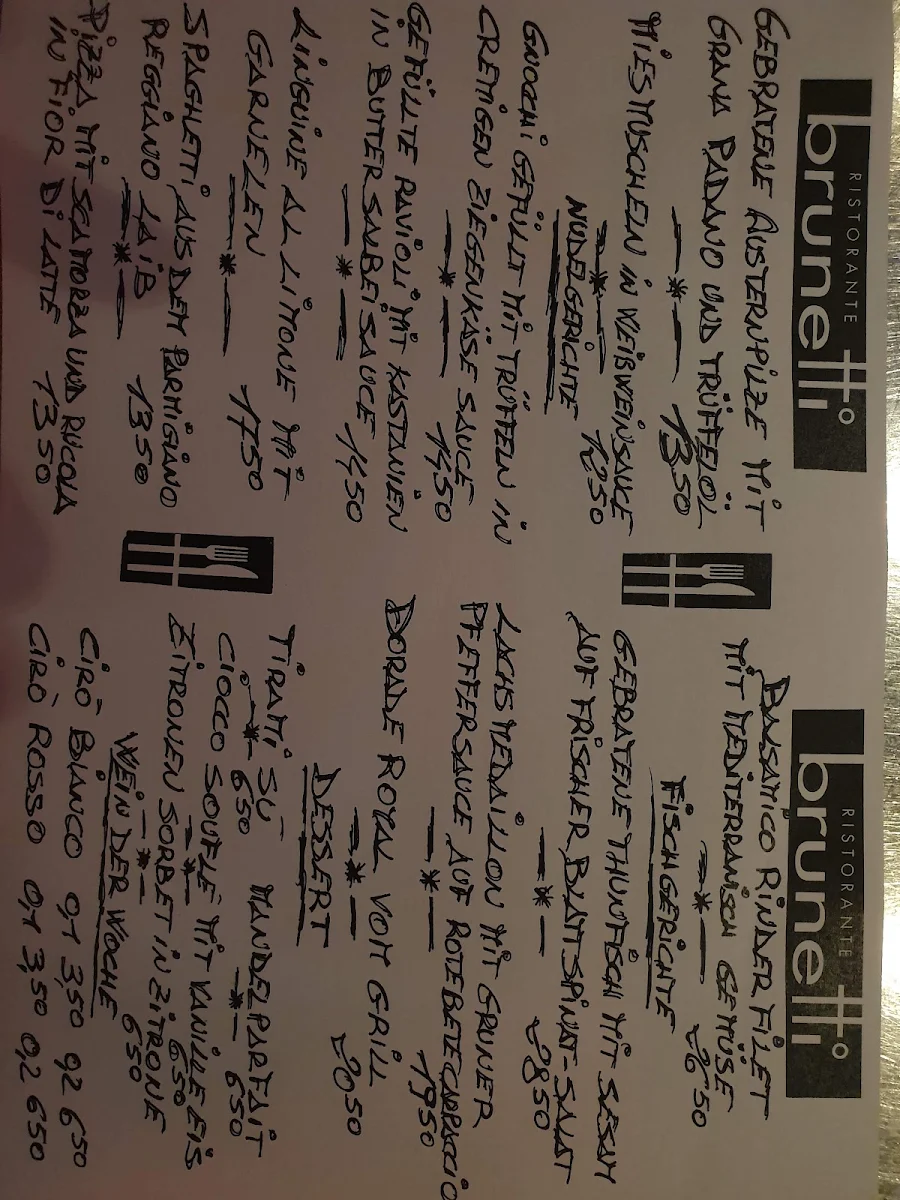 RISTORANTE
brunetti
GEBRATENE AUSTERNPILZE MIT
GRANA PADANO UND TRÜFFELÖL
13 50
MIESMUSCHELN IN WEIßWEINSAUCE
12 50
NUDELGERICHTE
GNOCHI GEFÜLLT MIT TRÜFFELN IN
CREMIGEN ZIEGENKÄSE SAUCE
14 50
GEFÜLLTE RAVIOLI MIT KASTANIEN
IN BUTTERSALBEISAUCE 14 50
LINGUINE AL LIMONE MIT
GARNELEN 17 50
SPAGHETTI AUS DEM PARMIGIANO
REGGIANO LAIB 13 50
PIZZA MIT SCAMORZA UND RUCOLA
IN FIOR DI LATTE 13 50
RISTORANTE
brunetti
BALSAMICO RINDER FILET
MIT MEDITERRANISCH GEMÜSE
26 50
FISCHGERICHTE
GEBRATENE THUNFISCH MIT SESAM
AUF FRISCHER BLATTSPINAT-SALAT
28 50
LACHSMEDAILLON MIT GRÜNER
PFEFFERSAUCE AUF ROTEBETECARPACCIO
19 50
DORADE ROYAL VOM GRILL
20 50
DESSERT
TIRAMI SU MANDELPARFAIT
6 50 6 50
CIOCCO SOUFLE MIT VANILLE EIS
6 50
ZITRONEN SORBET IN ZITRONE
6 50
WEIN DER WOCHE
CIRÒ BIANCO 0,1 3,50 0,2 6 50
CIRÒ ROSSO 0,1 3,50 0,2 6 50